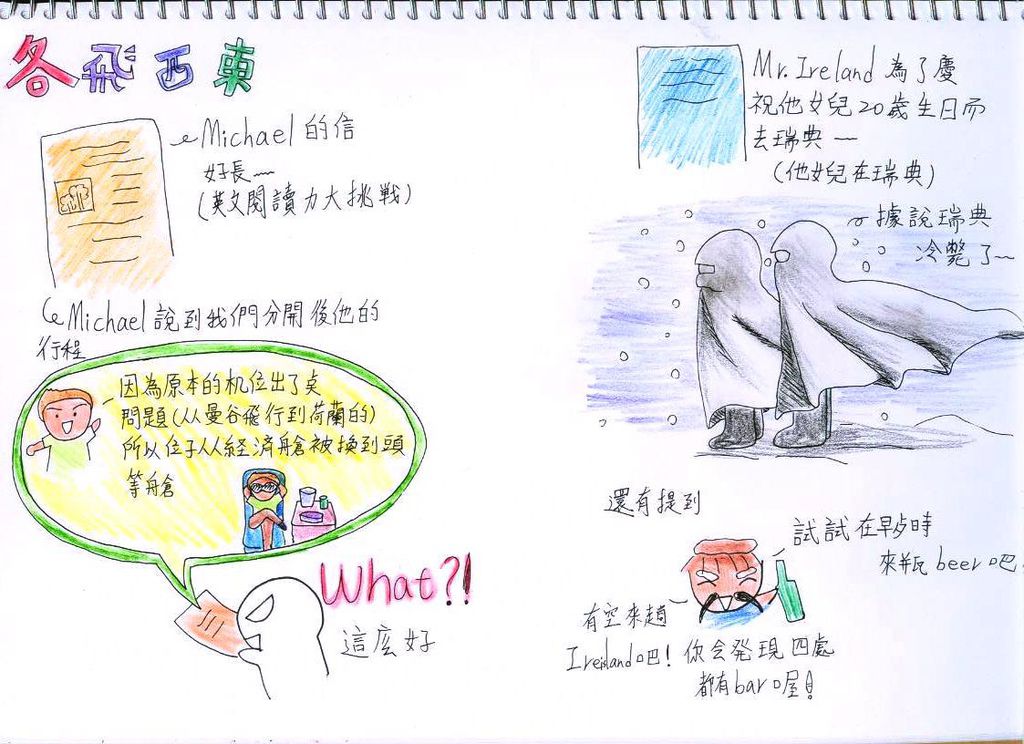 各飛西東
Michael 的信
好長~
(英文閱讀力大挑戰)
Michael 說到我們分開後他的
行程
因為原本的机位出了點
問題(从曼谷飛行到荷蘭的)
所以位子从経済艙被換到頭
等艙
What?!
這庅好
Mr. Ireland 為了慶
祝他女兒20歲生日而
去瑞典~
(他女兒在瑞典)
據說瑞典
冷斃了~
還有提到
試試在早上時
來瓶 beer 吧
有空來趟
Ireland 吧! 你会発現四處
都有 bar 喔!